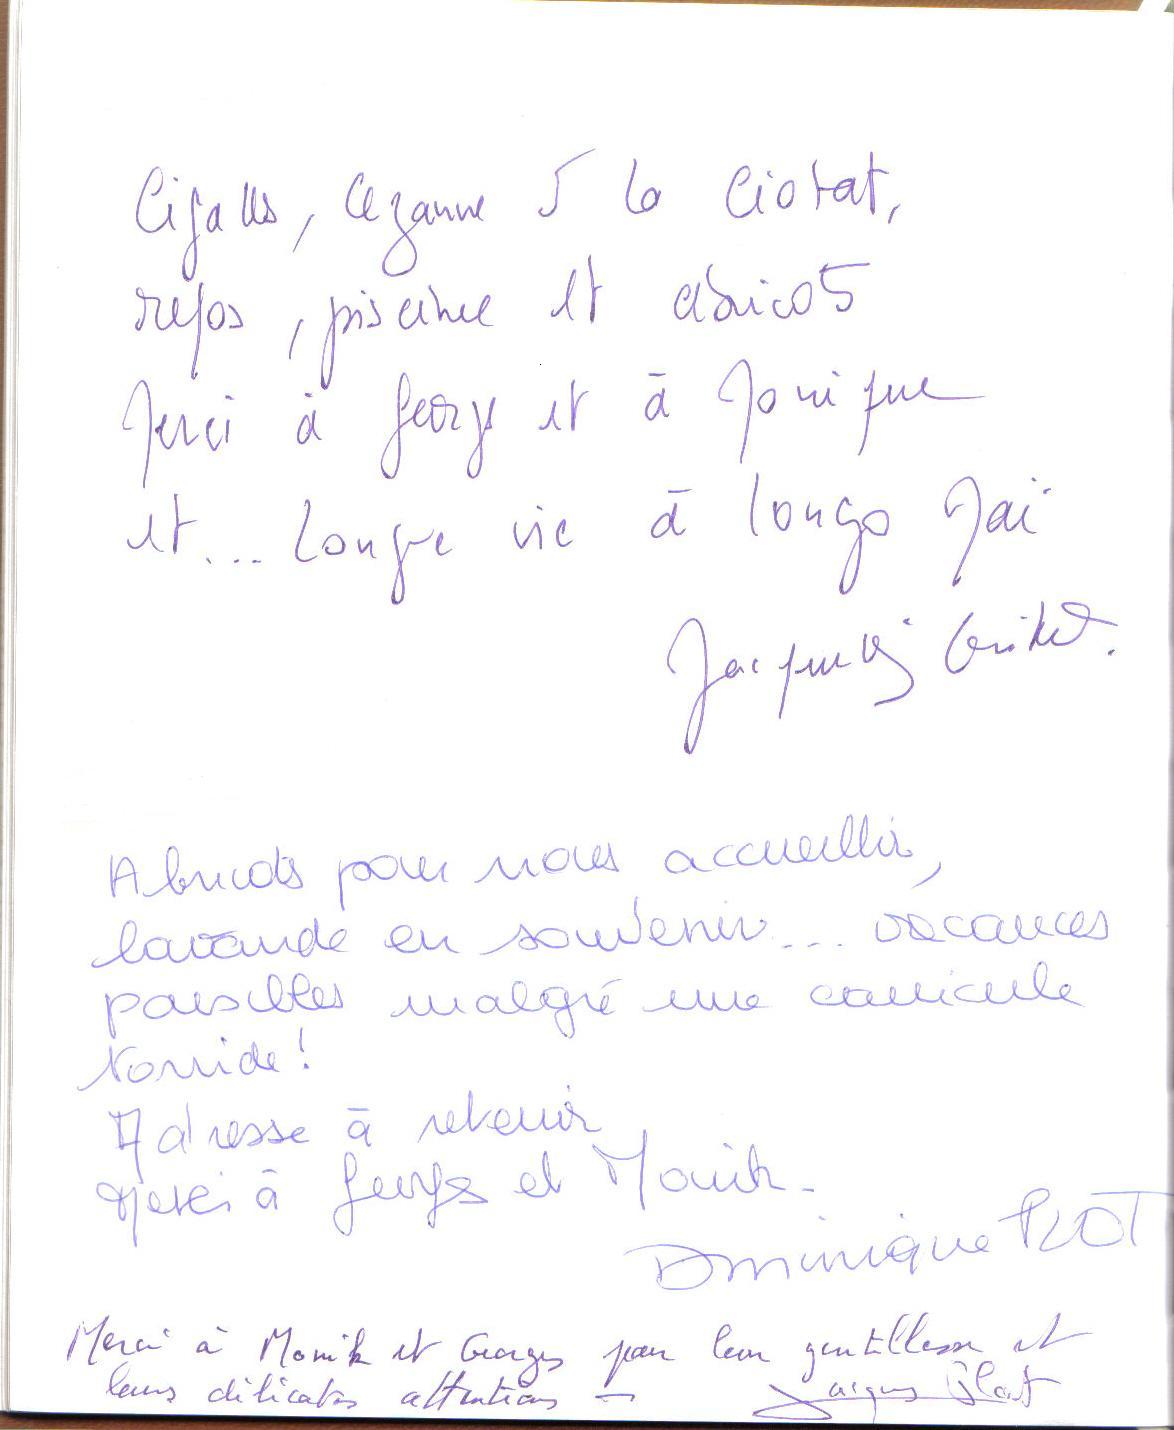 Cigales, Cézanne à la Ciotat,
repos, piscine et abricots
Merci à Georges et à Monique
et... longue vie à longo Maï
Jacques
Abricots pour nous accueillir,
lavande en souvenir... vacances
paisibles malgré une canicule
torride!
Adresse à retenir
Merci à Georges et Monik.
Dominique PLOT
Merci à Monik et Georges pour leur gentillesse et
leurs délicates attentions — Jacques Plot